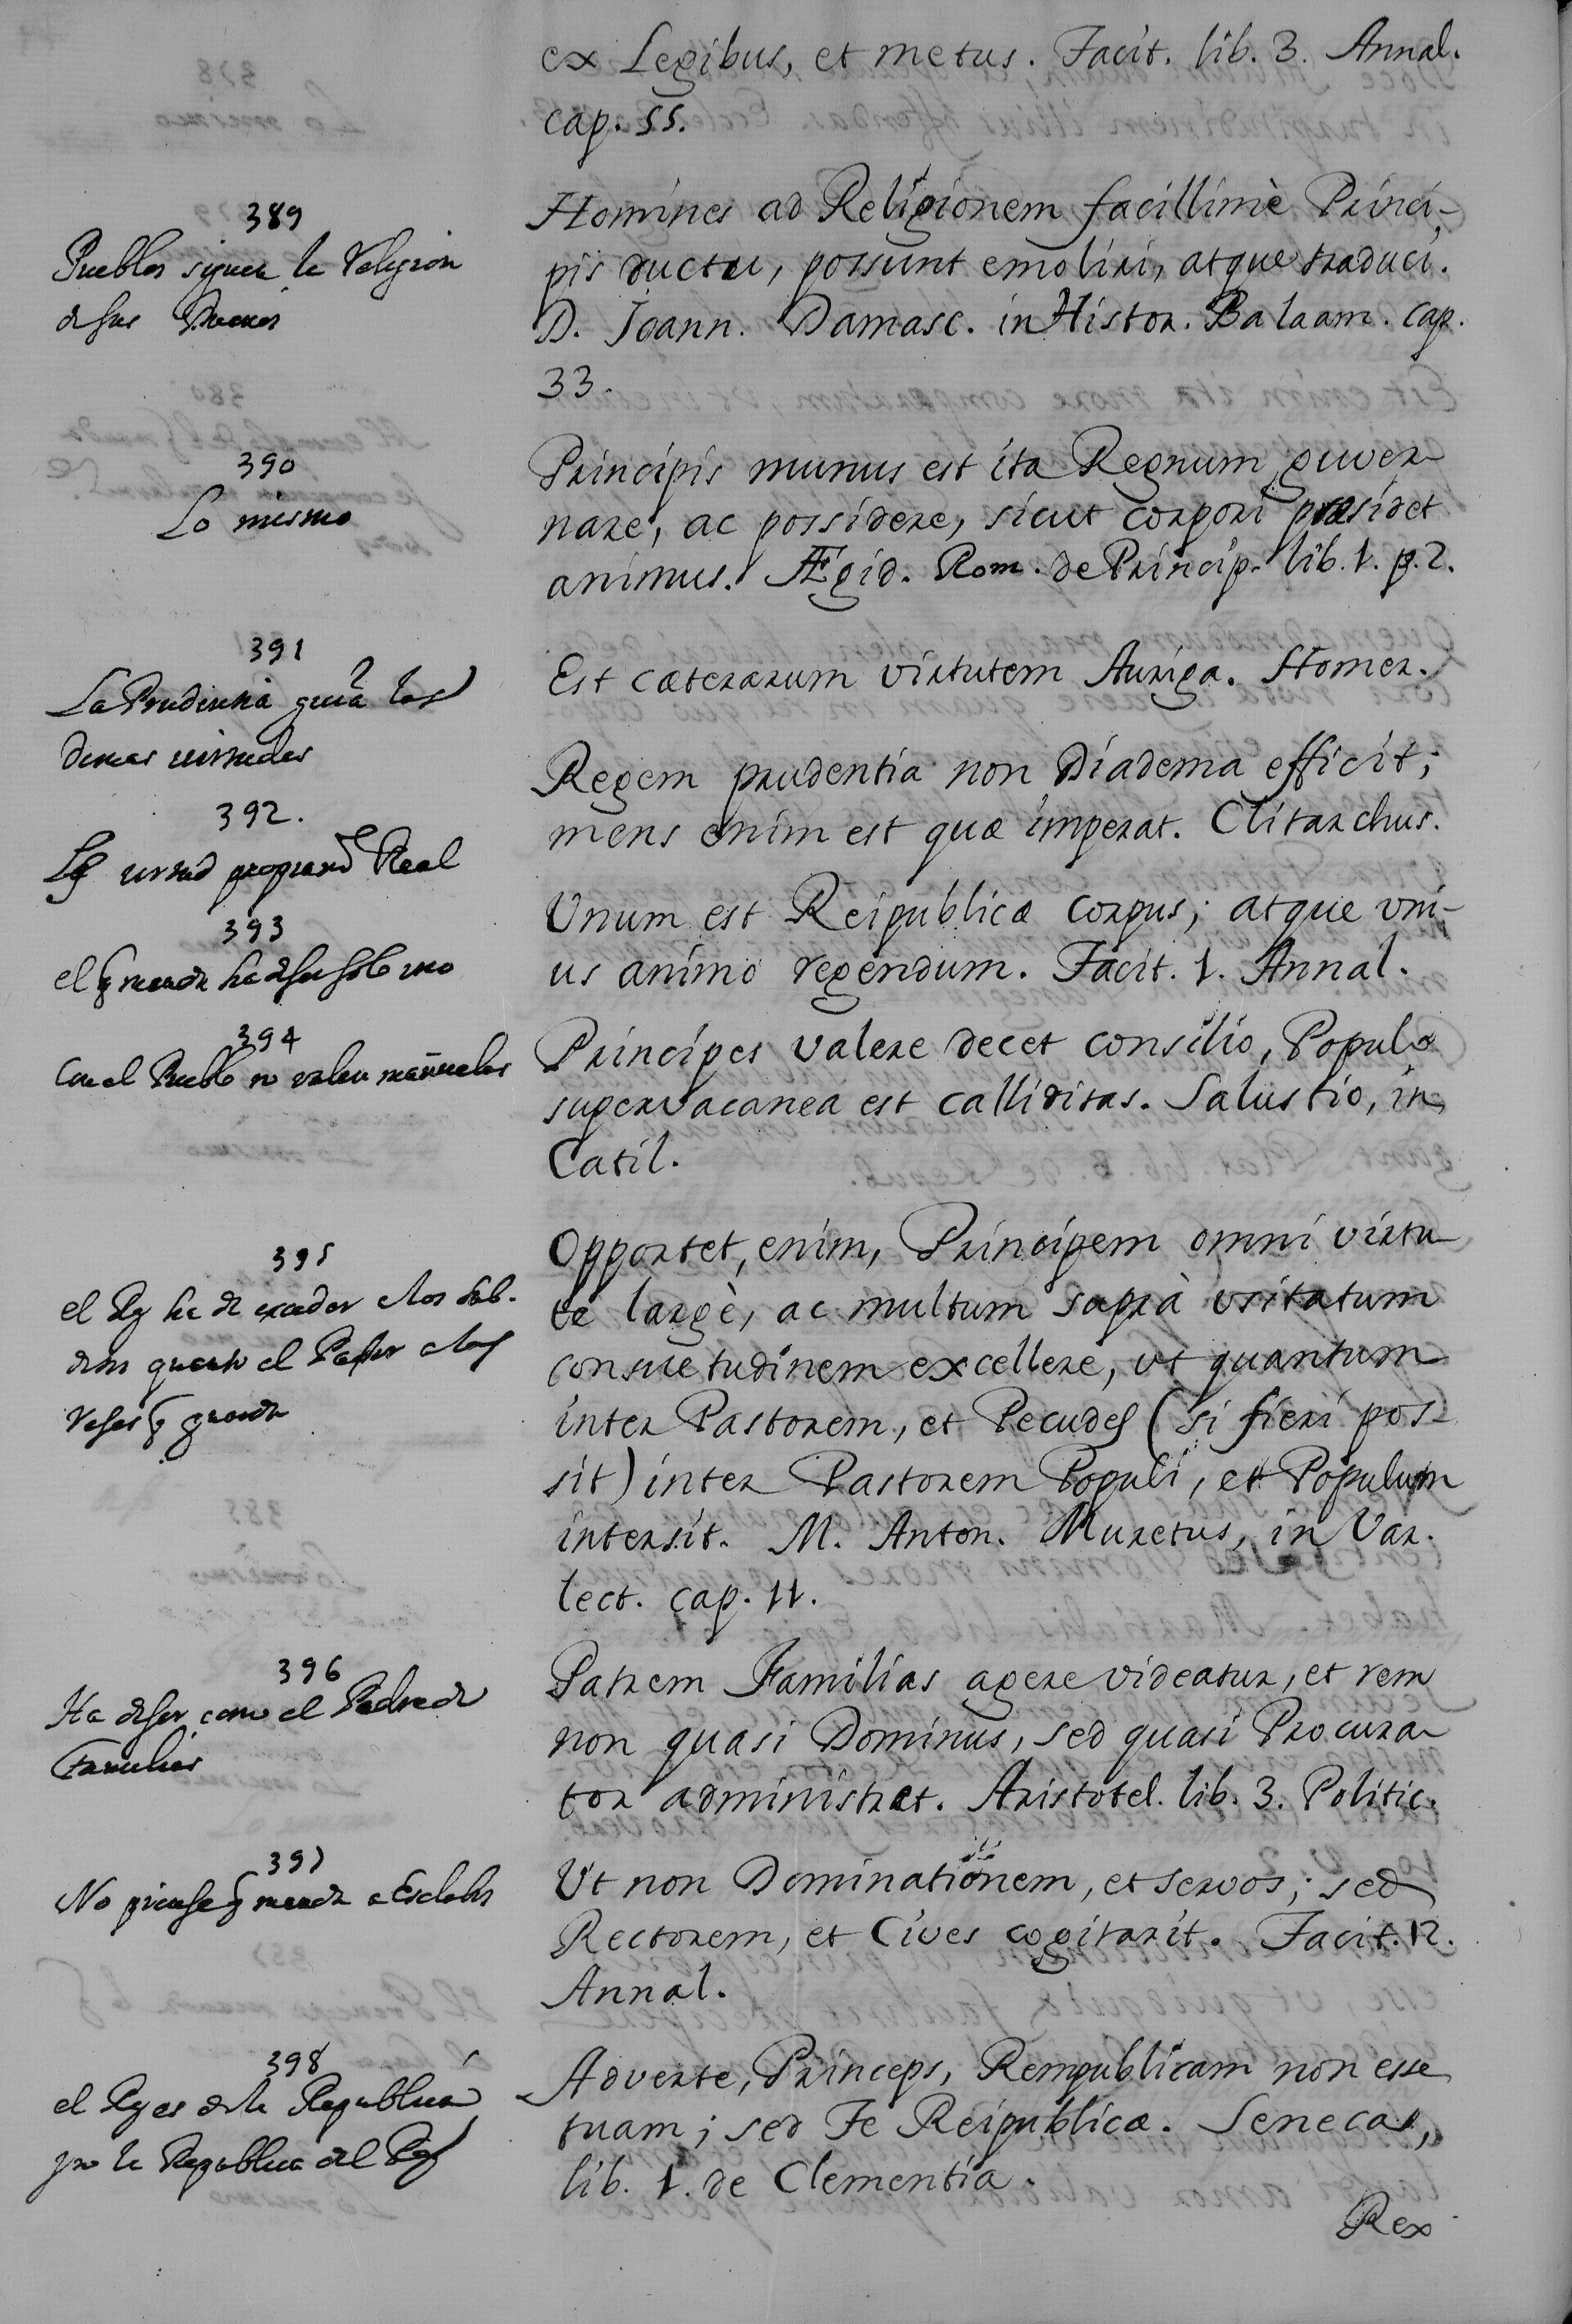 ex Legibus, et metus. Tacit. lib. 3. Annal.
cap. 55.
389
Pueblos siguen la Religion
de sus Duenos
Homines ad Religionem facillimè Princi-
pis ductu, possunt emoliri, atque traduci.
D. Joann. Damasc. in Histor. Balaam. cap.
33.
390
Lo mismo
Principis munus est ita Regnum guver-
nare, ac possidere, sicut corpori præsidet
animus. Ægid. Rom. de Princip. lib. 1. p. 2.
391
La Prudencia guia las
demas virtudes
Est cæterarum virtutem Auriga. Homer.
392.
Es virtud propriam.te Real
Regem prudentia non Diadema efficit;
mens enim est quæ imperat. Clitarchus.
393
el q manda ha de ser solo uno
Unum est Reipublicæ corpus; atque vni-
us animo regendum. Tacit. 1. Annal.
394
Con el Pueblo no valen mañuelas
Principes valere decet consilio, Populo
supervacanea est calliditas. Salustio, in
Catil.
395
el Rey ha de exceder a los sub-
ditos quanto el Pastor a las
reses q guarda
Opportet, enim, Principem omni virtu-
te largè, ac multum suprà usitatum
consuetudinem excellere, ut quantum
inter Pastorem, et Pecudes (si fieri pos-
sit) inter Pastorem Populi, et Populum
intersit. M. Anton. Muretus, in Var.
lect. cap. 11.
396
Ha de ser como el Padre de
Familias
Patrem Familias agere videatur, et rem
non quasi Dominus, sed quasi Procura-
tor administret. Aristotel. lib. 3. Politic.
397
No piense q manda a Esclabos
Ut non Dominationem, et servos; sed
Rectorem, et Cives cogitarit. Tacit. 12.
Annal.
398
el Rey es de la Republica
y no la Republica del Rey
Adverte, Princeps, Rempublicam non esse
tuam; sed Te Reipublicæ. Senecas,
lib. 1. de Clementia.
Rex